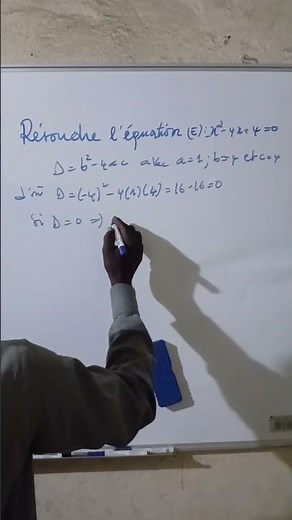 Résoudre l'équation (E): x² - 4x + 4 = 0
Δ = b² - 4ac avec a = 1 ; b = 4 et c = 4
d'où Δ = (-4)² - 4(1)(4) = 16 - 16 = 0
Si Δ = 0 ⇒